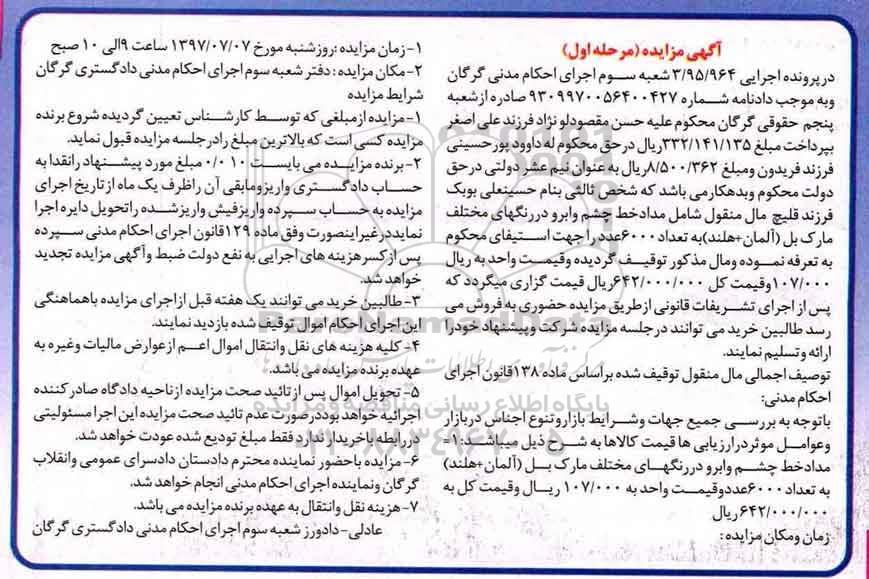 آگهی مزایده (مرحله اول)
در پرونده اجرایی ۳/۹۵/۹۶۴ شعبه سوم اجرای احکام مدنی گرگان
وبه موجب دادنامه شماره ۹۳۰۹۹۷۰۰۵۶۴۰۰۴۲۷ صادره از شعبه
پنجم حقوقی گرگان محکوم علیه حسن مقصودلو نژاد فرزند علی اصغر
بپرداخت مبلغ ۳۳۲/۱۴۱/۱۳۵ریال در حق محکوم له داوود پور حسینی
فرزند فریدون ومبلغ ۸/۵۰۰/۳۶۲ریال به عنوان نیم عشر دولتی در حق
دولت محکوم وبدهکار می باشد که شخص ثالثی بنام حسینعلی بوبک
فرزند قلیچ مال منقول شامل مداد خط چشم وابرو در رنگهای مختلف
مارک بل (آلمان+هلند)به تعداد ۶۰۰۰عدد را جهت استیفای محکوم
به تعرفه نموده ومال مذکور توقیف گردیده وقیمت واحد به ریال
۱۰۷/۰۰۰وقیمت کل ۶۴۲/۰۰۰/۰۰۰ریال قیمت گزاری میگردد که
پس از اجرای تشریفات قانونی از طریق مزایده حضوری به فروش می
رسد طالبین خرید می توانند در جلسه مزایده شرکت وپیشنهاد خود را
ارائه وتسلیم نمایند.
توصیف اجمالی مال منقول توقیف شده بر اساس ماده ۱۳۸قانون اجرای
احکام مدنی:
باتوجه به بررسی جمیع جهات وشرایط بازار وتنوع اجناس در بازار
وعوامل موثر در ارزیابی ها قیمت کالاها به شرح ذیل میباشد:۱-
مداد خط چشم وابرو در رنگهای مختلف مارک بل (آلمان+هلند)
به تعداد ۶۰۰۰عدد وقیمت واحد به ۱۰۷/۰۰۰ ریال وقیمت کل به
۶۴۲/۰۰۰/۰۰۰ریال
زمان ومکان مزایده :
۱- زمان مزایده :روز شنبه مورخ ۱۳۹۷/۰۷/۰۷ ساعت ۹الی ۱۰ صبح
۲-مکان مزایده : دفتر شعبه سوم اجرای احکام مدنی دادگستری گرگان
شرایط مزایده
۱-مزایده از مبلغی که توسط کارشناس تعیین گردیده شروع برنده
مزایده کسی است که بالاترین مبلغ را در جلسه مزایده قبول نماید.
۲-برنده مزایده می بایست ۱۰ ۰/۰ مبلغ مورد پیشنهاد را نقدا به
حساب دادگستری واریز ومابقی آن را ظرف یک ماه از تاریخ اجرای
مزایده به حساب سپرده واریز فیش واریز شده را تحویل دایره اجرا
نماید در غیر اینصورت وفق ماده ۱۲۹قانون اجرای احکام مدنی سپرده
پس از کسر هزینه های اجرایی به نفع دولت ضبط وآگهی مزایده تجدید
خواهد شد.
۳-طالبین خرید می توانند یک هفته قبل از اجرای مزایده باهماهنگی
این اجرای احکام اموال توقیف شده بازدید نمایند.
۴- کلیه هزینه های نقل وانتقال اموال اعم از عوارض مالیات وغیره به
عهده برنده مزایده می باشد.
۵- تحویل اموال پس از تائید صحت مزایده از ناحیه دادگاه صادر کننده
اجرائیه خواهد بود در صورت عدم تائید صحت مزایده این اجرا مسئولیتی
در رابطه با خریدار ندارد فقط مبلغ تودیع شده عودت خواهد شد.
۶-مزایده باحضور نماینده محترم دادستان دادسرای عمومی وانقلاب
گرگان ونماینده اجرای احکام مدنی انجام خواهد شد.
۷-هزینه نقل وانتقال به عهده برنده مزایده می باشد.
عادلی-دادورز شعبه سوم اجرای احکام مدنی دادگستری گرگان
ParsNamadData
پایگاه اطلاع رسانی مناقصه و مزایده